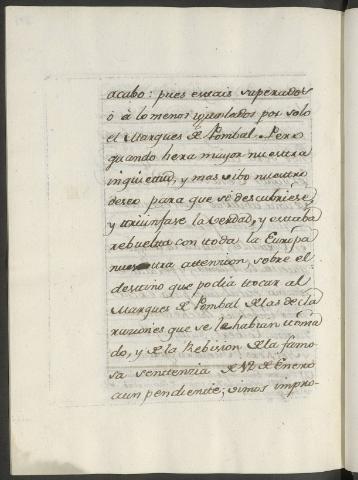 acabo: pues estais superados
ó à lo menos igualados por solo
el Marques de Pombal. Pero
quando hera mayor nuestra
inquietud, y mas vibo nuestro
deseo para que se descubriese,
y triunfase la verdad, y estaba
rebuelta con toda la Europa
nuestra attencion sobre el
destino que podia tocar al
Marques de Pombal de las decla
raziones que se le habian toma
do, y de la Rebision de la famo
sa sentenzia de 12 de Enero
aun pendiente; vimos impro-